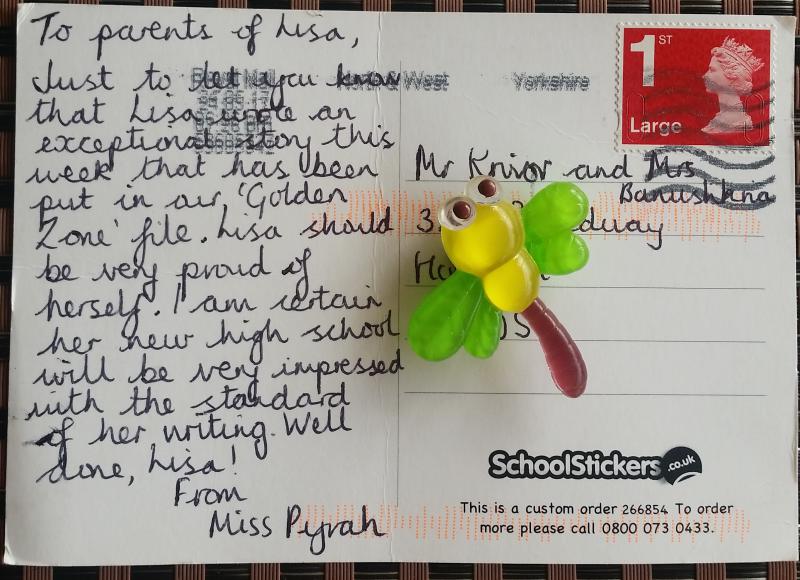 To parents of Lisa,
Just to let you know
that Lisa wrote an
exceptional story this
week that has been
put in our 'Golden
Zone' file. Lisa should
be very proud of
herself. I am certain
her new high school
will be very impressed
with the standard
of her writing. Well
done, Lisa!
From
Miss Pyrah
West Yorkshire
1ST
Large
Mr Knivor and Mrs
Banushkina
3,
SchoolStickers.co.uk
This is a custom order 266854 To order
more please call 0800 073 0433.